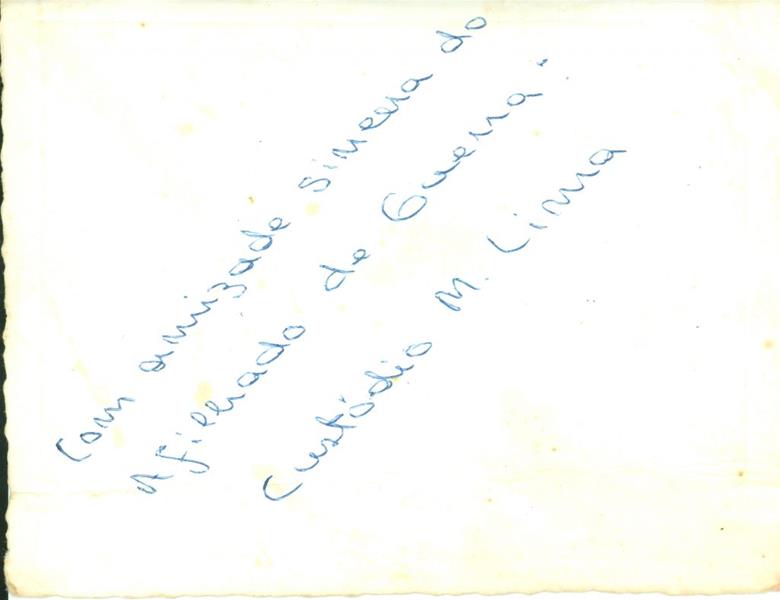 Com amizade sincera do
Afilhado de Guerra.
Custódio M. Lima